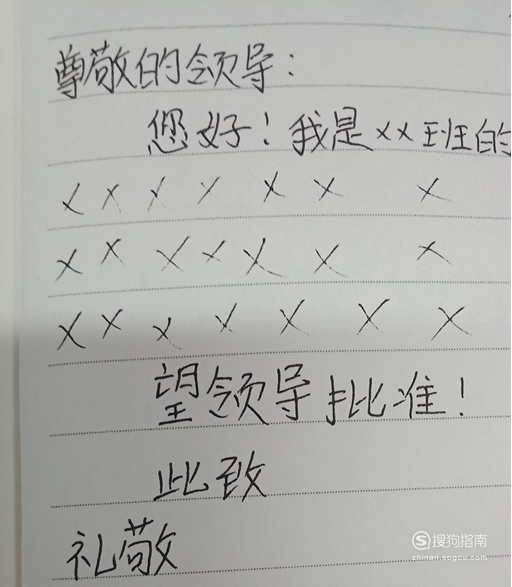 尊敬的领导：
您好！我是xx班的
x x x x x x x
x x x x x x x
x x x x x x x
望领导批准！
此致
礼敬
搜狗指南
zhinan.sogou.com